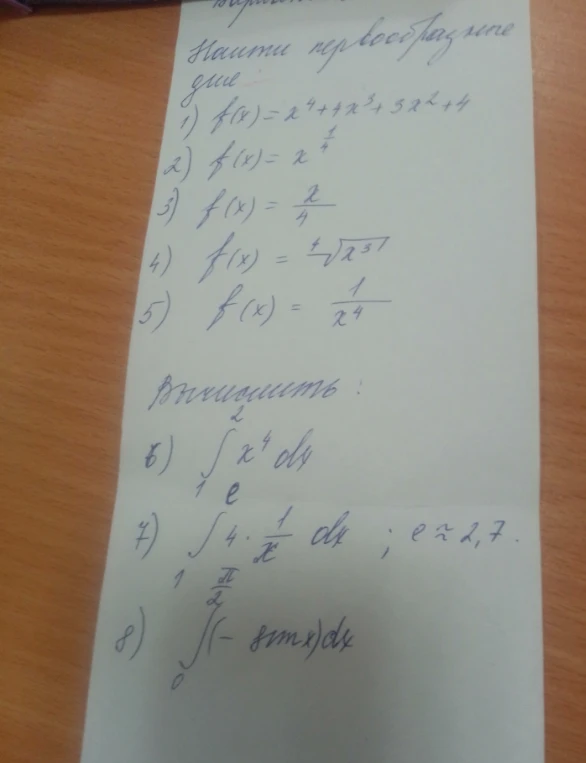 Найти первообразные
для
1) f(x) = x⁴ + 4x³ + 3x² + 4
2) f(x) = x^(1/4)
3) f(x) = x/4
4) f(x) = ⁴√x³
5) f(x) = 1/x⁴
Вычислить:
6) ∫₁² x⁴ dx
7) ∫₁ᵉ 4 · 1/x dx ; e ≈ 2,7.
8) ∫₀^(π/2) (- sin x) dx